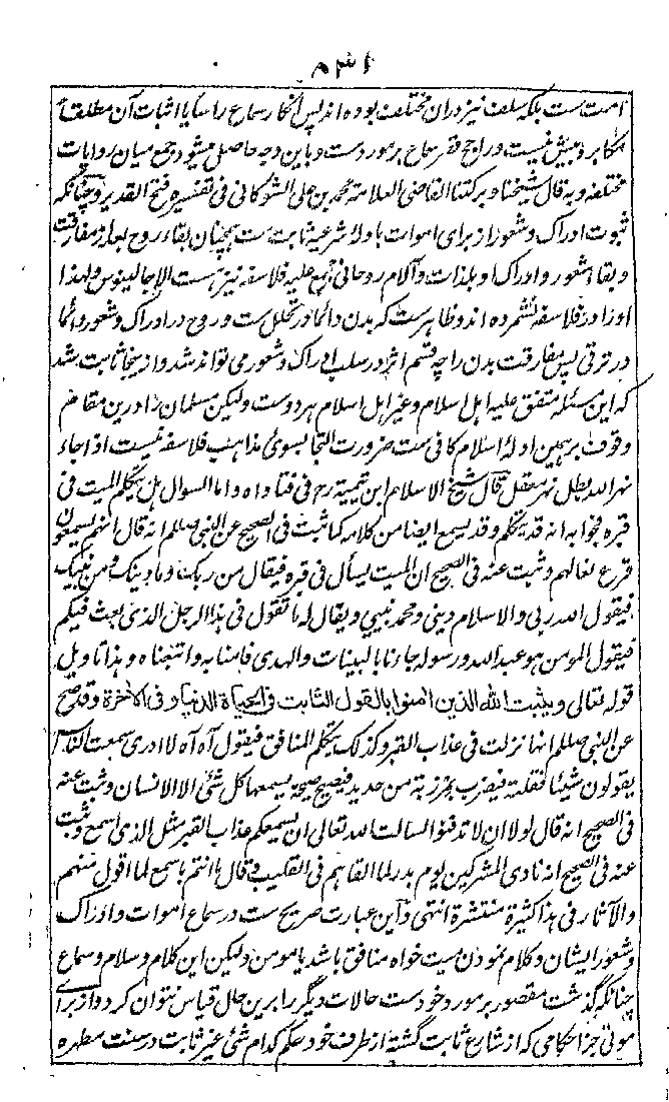 ۳۱م
امت ست بلکه سلف نیز دران مختلف بوده اند پس انکار سماع را سا یا اثبات آن مطلقا
مکابره بیش نیست و راجح قصر سماع بر مورد ست و باین وجه حاصل میشود جمع میان روایات
مختلفه و به قال شیخنا و برکتنا القاضی العلامة محمد بن علی الشوکانی فی تفسیره فتح القدیر و چنانکه
ثبوت ادراک و شعور از برای اموات با دلهٔ شرعیه ثابت ست همچنان بقاء روح بعد از مفارقت
و بقاء شعور و ادراک او بلذات و آلام روحانی مجمع علیه فلاسفه نیز هست الا جالینوس و لهذا
او را در فلاسفه نشمرده اند و ظاهرست که بدن دائما در تحلل ست و روح در ادراک و شعور دائما
در ترقی پس مفارقت بدن را چه قسم اثر در سلب ادراک و شعور می تواند شد و از ینجا ثابت شد
که این مسئله متفق علیه اهل اسلام و غیر اهل اسلام هر دوست و لیکن مسلمان را درین مقام
وقوف بر همین ادلهٔ اسلام کافی ست ضرورت التجا بسوی مذاهب فلاسفه نیست اذا جاء
نهر الله بطل نهر معقل قال شیخ الاسلام ابن تیمیة رح فی فتاواه و اما السوال هل یتکلم المیت فی
قبره فجوابه انه قد یتکلم و قد یسمع ایضا من کلامه کما ثبت فی الصحیح عن النبی صللم انه قال انهم یسمعون
قرع نعالهم و ثبت عنه فی الصحیح ان المیت یسأل فی قبره فیقال من ربک و ما دینک و من نبیک
فیقول الله ربی و الاسلام دینی و محمد نبیی و یقال له ما تقول فی هذا الرجل الذی بعث فیکم
فیقول المومن هو عبد الله و رسوله جاءنا بالبینات و الهدی فامنا به و اتبعناه و هذا تاویل
قوله تعالی ویثبت الله الذین امنوا بالقول الثابت فی الحیاة الدنیا و فی الاخرة و قد صح
عن النبی صللم انها نزلت فی عذاب القبر و کذلک یتکلم المنافق فیقول آه آه لا ادری سمعت الناس
یقولون شیئا فقلته فیضرب بمرزبة من حدید فیصیح صیحة یسمعها کل شئ الا الانسان و ثبت عنه
فی الصحیح انه قال لولا ان لا تدفنوا لسالت الله تعالی ان یسمعکم عذاب القبر مثل الذی اسمع و ثبت
عنه فی الصحیح انه نادی المشرکین یوم بدر لما القاهم فی القلیب و قال ما انتم باسمع لما اقول منهم
و الآثار فی هذا کثیرة منتشرة انتهی و این عبارت صریح ست در سماع اموات و ادراک
و شعور ایشان و کلام نمودن میت خواه منافق باشد یا مومن و لیکن این کلام و سلام و سماع
چنانکه گذشت مقصور بر مورد خود ست حالات دیگر را برین حال قیاس نتوان کرد و از برای
موتی جز احکامی که از شارع ثابت گشته از طرف خود حکم کدام شئ غیر ثابت در سنت مطهره